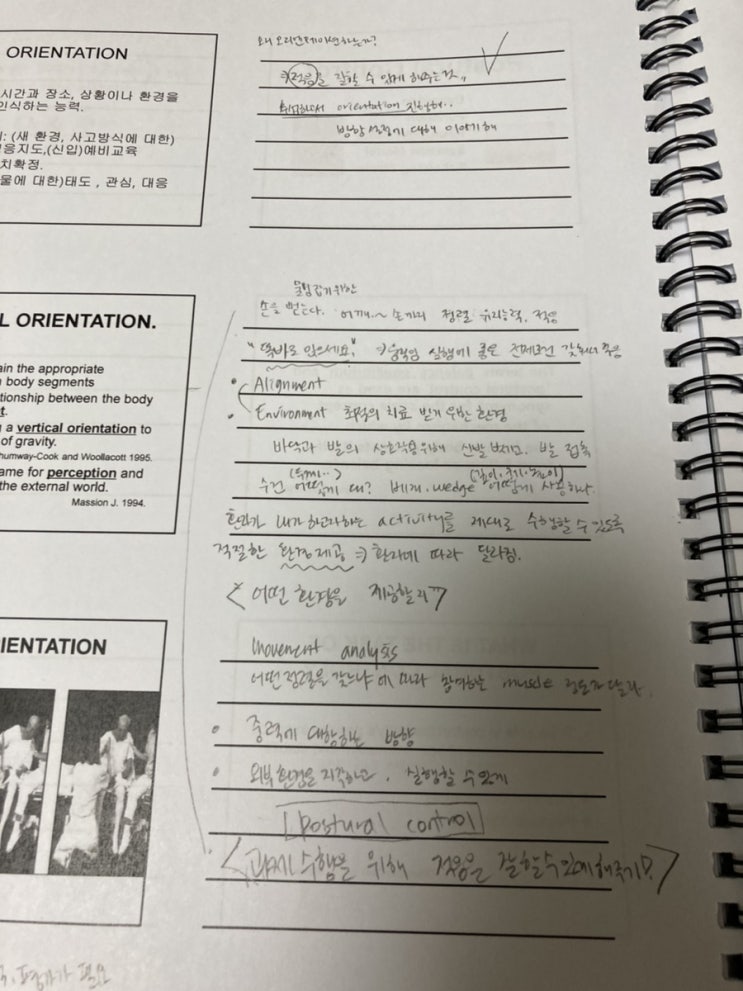 ORIENTATION
시간과 장소, 상황이나 환경을
인식하는 능력.
: (새 환경, 사고방식에 대한)
응지도,(신입)예비교육
치확정.
물에 대한)태도 , 관심, 대응
왜 오리엔테이션하는가?
적응을 잘할 수 있게 해주는것
orientation 진행해..
방향 설정에 대해 이야기해
L ORIENTATION.
ain the appropriate
body segments
tionship between the body
t.
g a vertical orientation to
of gravity.
humway-Cook and Woollacott 1995.
ame for perception and
the external world.
Massion J. 1994.
물컵 잡기 위한
손을 뻗는다. 어깨~ 손까지 정렬 유지능력, 적응
"똑바로 앉으세요" ⇒움직임 실행에 좋은 전제조건 갖춰서 적응
• Alignment
• Environment 최적의 치료 받기 위한 환경
바닥과 발의 상호작용위해 신발 벗기고. 발 접촉
(두께..) (깊이, 크기, 높이)
수건 어떻게 대? 베개. wedge 어떻게 사용하나.
환자가 내가 하고자하는 activity를 제대로 수행할 수 있도록
적절한 환경제공 ⇒ 환자에 따라 달라짐.
<어떤 환경을 제공할래>
IENTATION
movement analysis
어떤정렬을 갖느냐에 따라 참여하는 muscle 정도가 달라.
• 중력에 대항하는 방향
• 외부환경을 지각하고, 실행할 수 있게
[postural control]
<과제 수행을 위해 적응을 잘할수있게해주기!>
평가가 필요